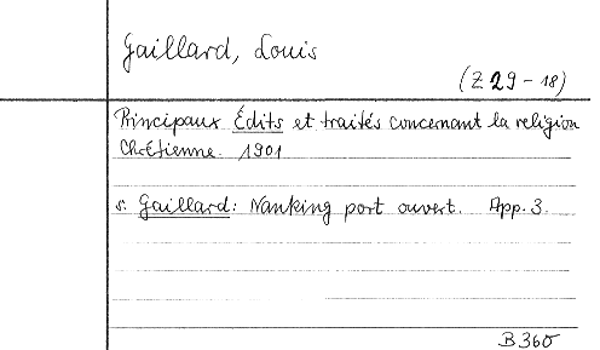 Gaillard, Louis
(Z 29-18)
Principaux Édits et traités concernant la religion
Chrétienne. 1901
s. Gaillard: Nanking port ouvert. App. 3.
B 360